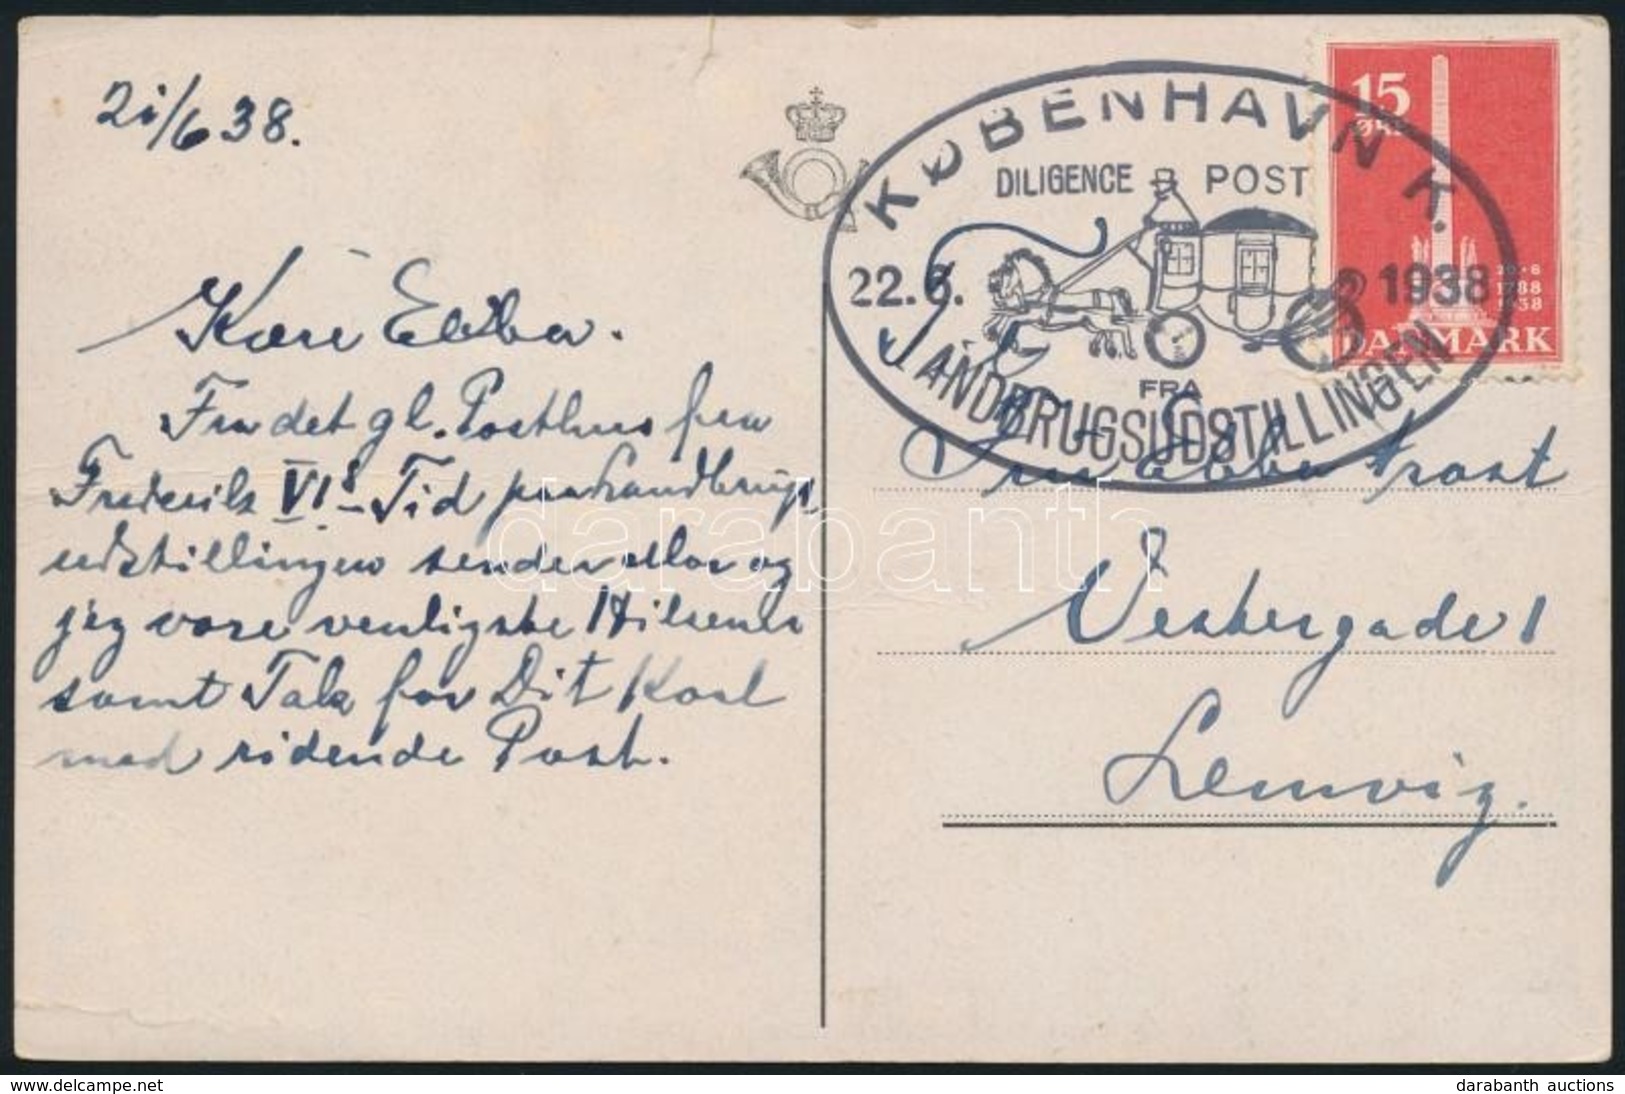 21/6 38.
Kære Ebba.
Fra det gl. Posthus fra
Frederik VIs Tid paa Landbrugs
udstillingen sender Mor og
jeg vore venligste Hilsener
samt Tak for Dit Kort
med ridende Post.
KØBENHAVN K.
DILIGENCE POST
22.6. 1938
FRA
LANDBRUGSUDSTILLINGEN
15
ØRE
20·6
1788
1938
DANMARK
Ebba Trost
Vestergade 1
Lemvig.
darabanth
delcampe.net
darabanth auctions